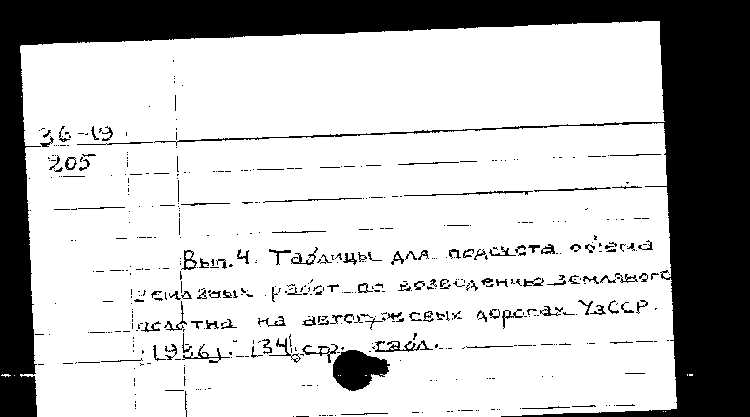 36-19
205
Вып. 4. Таблицы для подсчета объема
земляных работ по возведению земляного
полотна на автогужевых дорогах УзССР.
[1936]. 134 стр. табл.